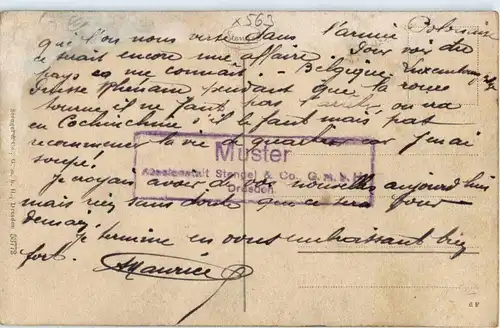 x 563
qu'l'on nous verse dans l'armée Polonaise
ce serait encore une affaire Pour voir du
pays ça me connait - Belgique Luxembourg
Prusse Rhénane pendant que la roue
tourne il ne faut pas on va
en Cochinchine s'il le faut mais pas
recommencer la vie d quartier car j'en ai
soupé!
Muster
Kunstanstalt Stengel & Co. G.m.b.H.
Dresden
Je croyais avoir des nouvelles aujourd'hui
mais rien sans doute que ce sera pour
demain.
Je termine en vous embrassant bien
fort. Maurice
Stengel & Co., G. m. b. H., Dresden